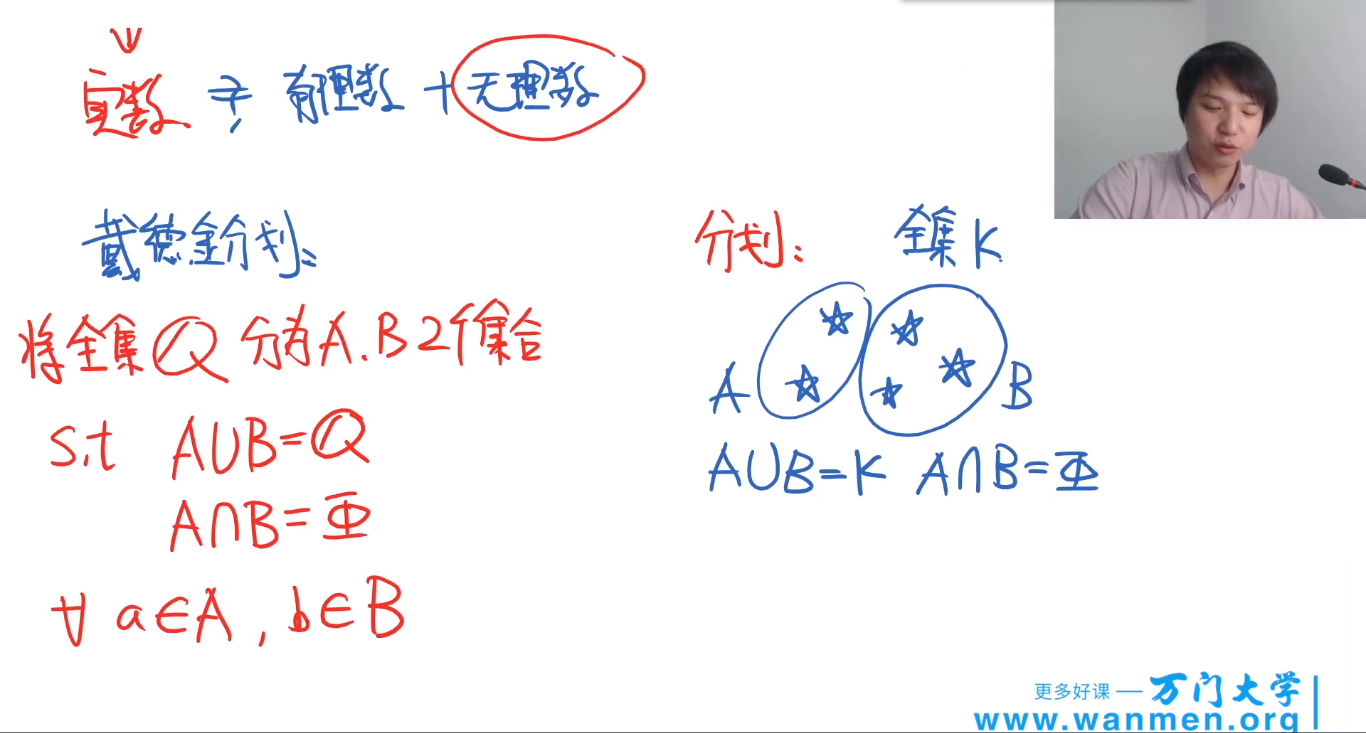 实数 ≠ 有理数 + 无理数
戴德金分划:
将全集Q 分为A.B 2个集合
s.t A∪B=Q
A∩B=Φ
∀ a∈A, b∈B
分划: 全集K
A B
A∪B=K A∩B=Φ
更多好课 — 万门大学
www.wanmen.org